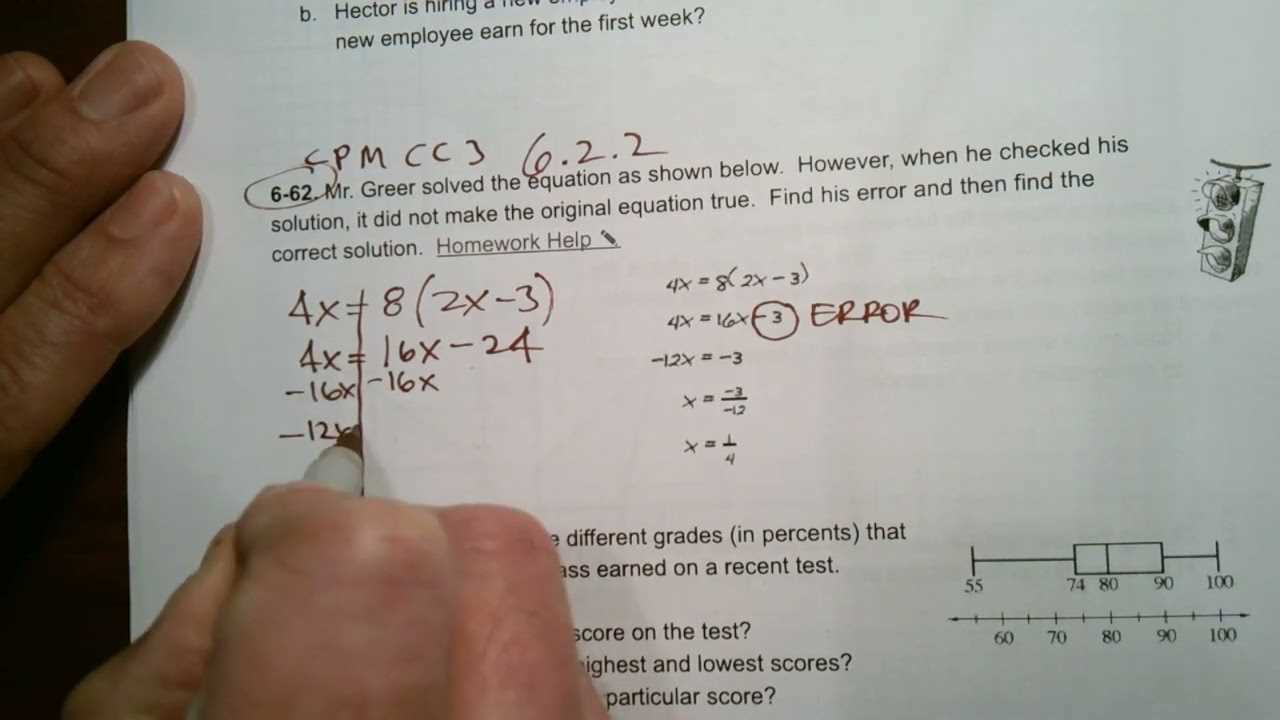 b. Hector is hiring a new
new employee earn for the first week?
CPM CC3 6.2.2
6-62. Mr. Greer solved the equation as shown below. However, when he checked his
solution, it did not make the original equation true. Find his error and then find the
correct solution. Homework Help ✎
4x = 8(2x-3)
4x = 16x - 24
-16x -16x
-12x
4x = 8(2x - 3)
4x = 16x - 3 ERROR
-12x = -3
x = -3/-12
x = 1/4
different grades (in percents) that
earned on a recent test.
score on the test?
highest and lowest scores?
particular score?
55 74 80 90 100
60 70 80 90 100